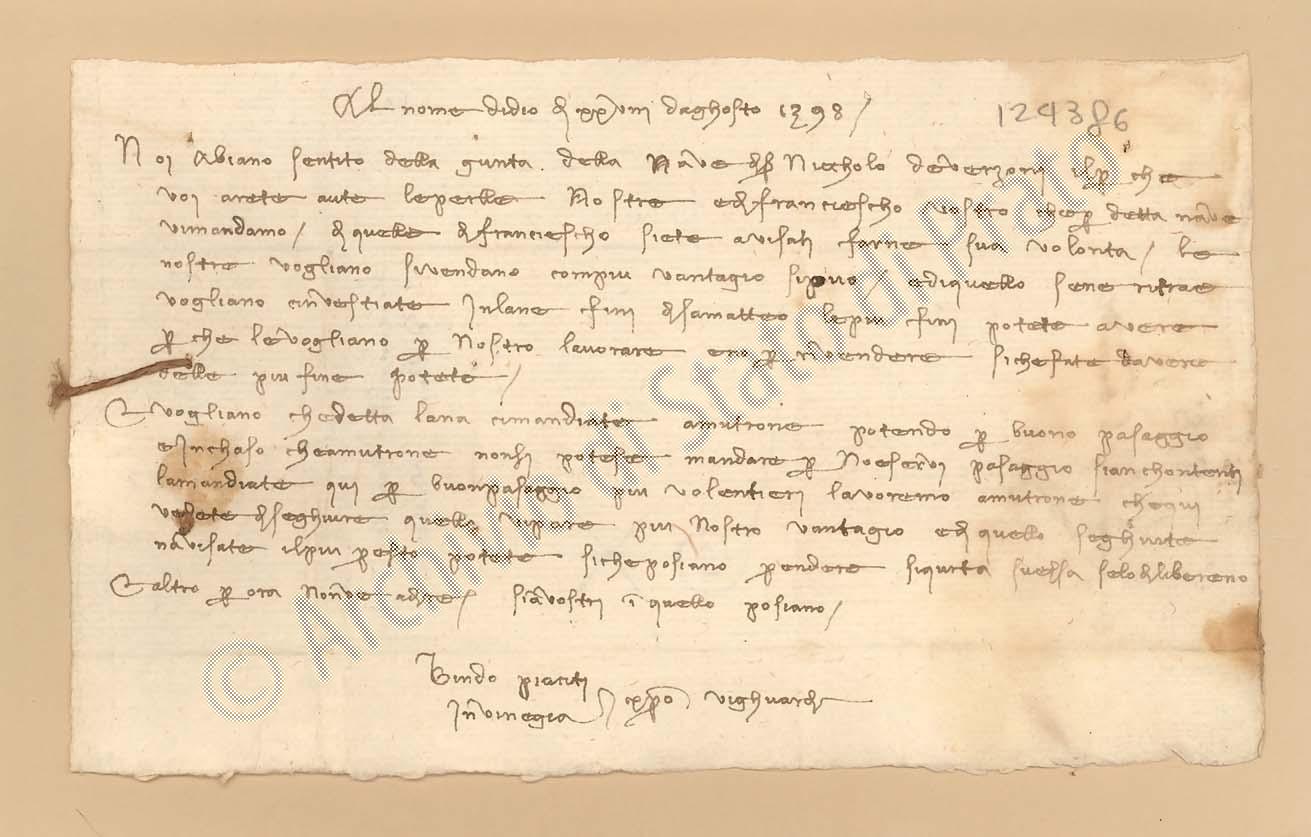 Al nome didio di xxviiii daghosto 1398 /
1243 86
Noi Abiano sentito della gunta della Nave di ser Nicholo
voi arete aute le perlle Nostre e di franciescho vostro che per detta nave
vi mandamo / di quelle di franciescho siete avisati farne sua volonta / le
nostre vogliano si vendano com piu vantagio si puo / e di quello se ne ritrae
vogliano investiate In lane fini di samatteo le piu fini potete avere
per che le vogliano per Nostro lavorare e no per rivendere siche fate d avere
delle piu fine potete /
E vogliano che detta lana ci mandiate a mutrone potendo per buono pasaggio
e In chaso che a mutrone non si potese mandare per No eservi pasaggio sian chontenti
la mandiate qui per buon pasaggio piu volentieri la voremo a mutrone che qui
vedete di seghuire quello vi pare piu Nostro vantagio e di quello seghuite
n avisate il piu presto potete siche posiano prendere siqurta sue sa se lo dilibereno
E altro per ora Non ve a dire / sian vostri i quello posiano /
Bindo piaciti
In vinegia / xpo vi ghuardi
© Archivio di Stato di Prato